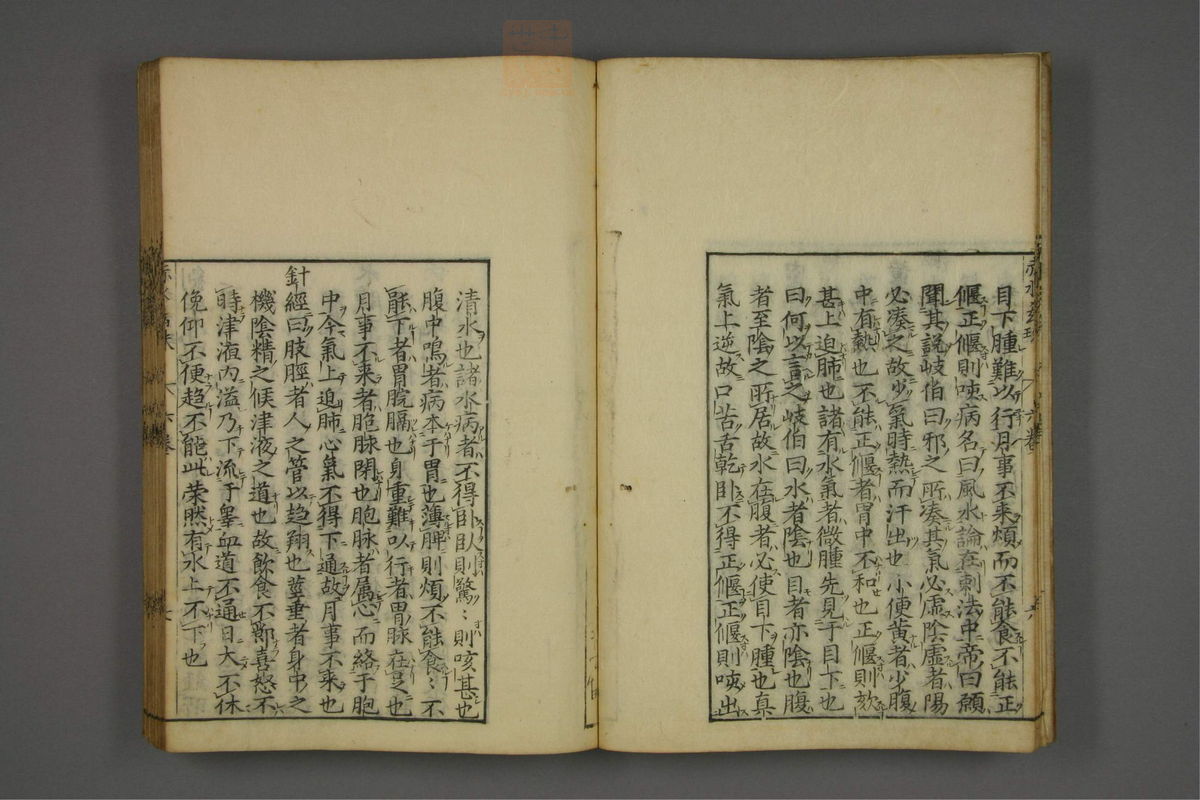 目下腫難以行月事不来煩而不能食不能正
偃正偃則咳病名曰風水論在刺法中帝曰願
聞其說岐伯曰邪之所湊其氣必虚陰虚者陽
必湊之故少氣時熱而汗出也小便黄者少腹
中有熱也不能正偃者胃中不和也正偃則欬
甚上迫肺也諸有水氣者微腫先見于目下也
曰何以言之岐伯曰水者陰也目者亦陰也腹
者至陰之所居故水在腹者必使目下腫也真
氣上逆故口苦舌乾卧不得正偃正偃則咳出
清水也諸水病者不得卧卧則驚〻則咳甚也
腹中鳴者病本于胃也薄脾則煩不能食〻不
下者胃脘膈也身重難以行者胃脉在足也
月事不来者胞脉閉也胞脉者属心而絡于胞
中今氣上迫肺心氣不得下通故月事不来也
針經曰肢脛者人之管以趋翔也莖垂者身中之
機陰精之候津液之道也故飲食不節喜怒不
時津液内溢乃下流于睾血道不通日大不休
俛仰不便趋不能此荣然有水上不下也
六卷